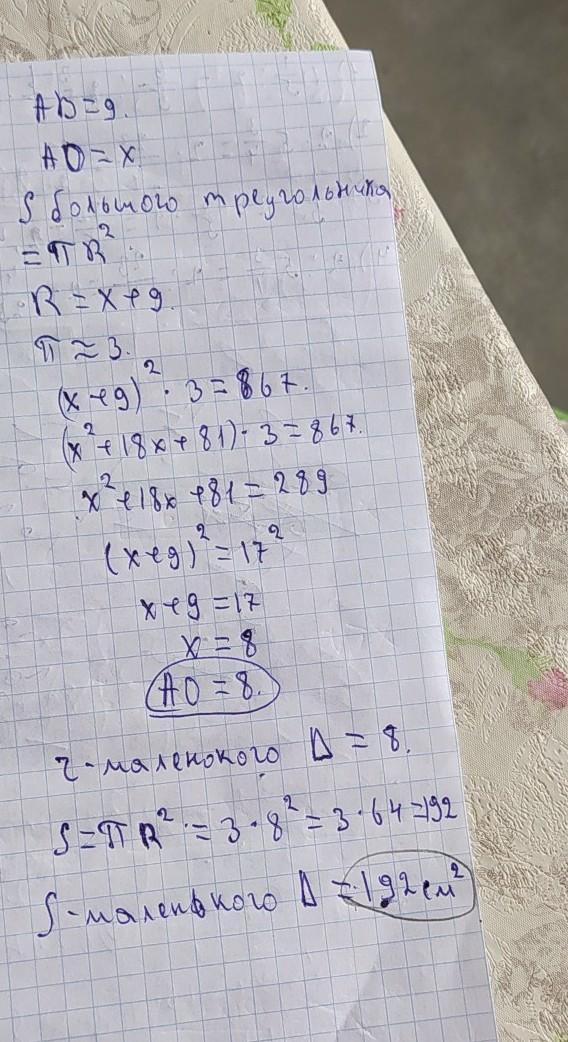 AD = 9.
AO = x
S большого треугольника
= πR²
R = x + 9.
π ≈ 3.
(x + 9)² · 3 = 867.
(x² + 18x + 81) · 3 = 867.
x² + 18x + 81 = 289
(x + 9)² = 17²
x + 9 = 17
x = 8
AO = 8.
r - маленокого Δ = 8.
S = πR² = 3 · 8² = 3 · 64 = 192
S - маленького Δ = 192 см²